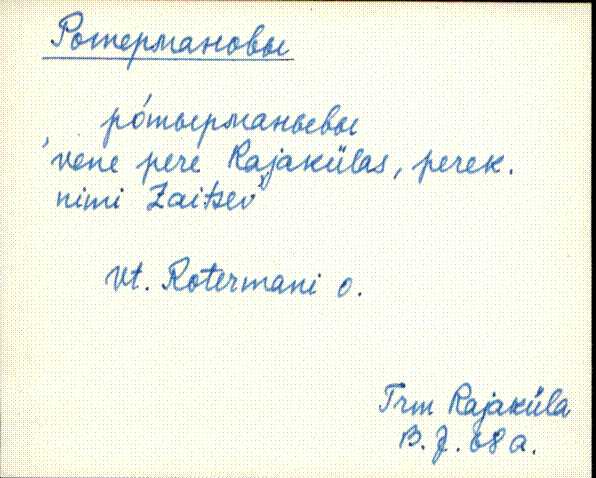 Ротермановы
ро́тырманыевы
'vene pere Rajakülas, perek.
nimi Zaitsev'
Vt. Rotermani o.
Trm Rajaküla
B. J. 68 a.